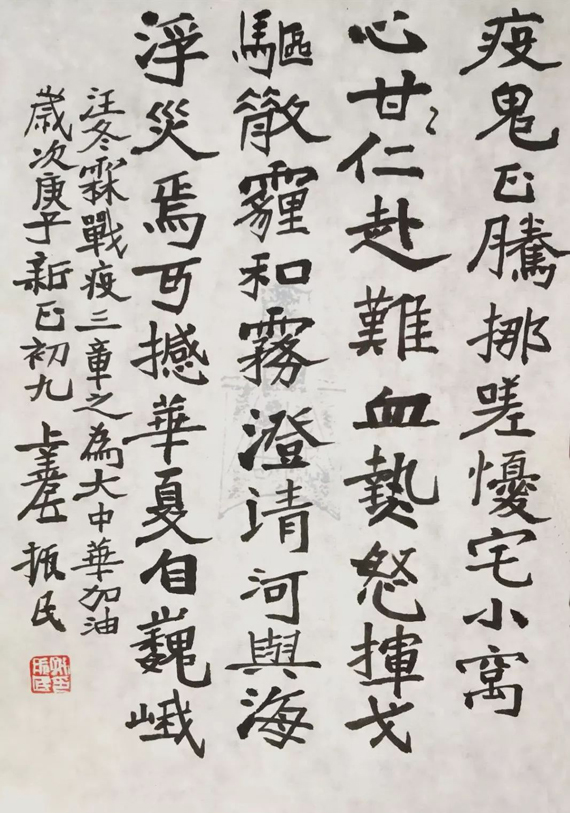 疫鬼正騰挪嗟懮宅小窩
心甘仁赴難血熱怒揮戈
驅散霾和霧澄清河與海
浮災焉可撼華夏自巍峨
汪冬霖戰疫三章之為大中華加油
歲次庚子新正初九上善居振民